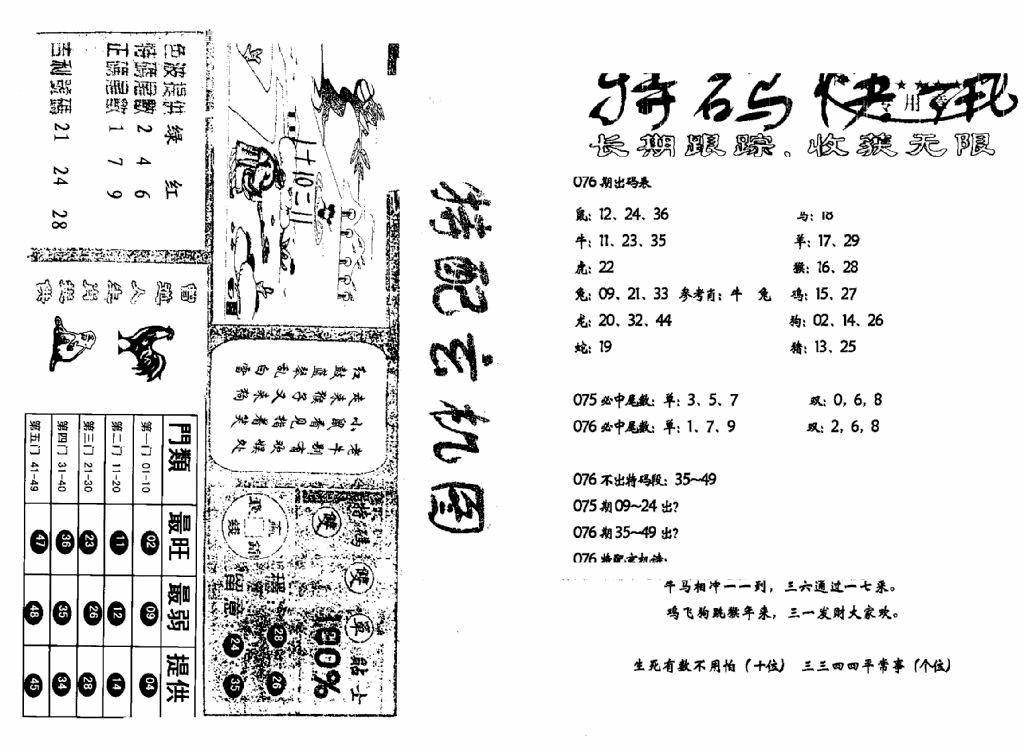 特码快讯
专用
长期跟踪、收获无限
076 期出码表
鼠: 12、24、36
马: 18
牛: 11、23、35
羊: 17、29
虎: 22
猴: 16、28
兔: 09、21、33 参考肖: 牛 兔
鸡: 15、27
龙: 20、32、44
狗: 02、14、26
蛇: 19
猪: 13、25
075 必中尾数: 单: 3、5、7
双: 0, 6, 8
076 必中尾数: 单: 1、7、9
双: 2, 6, 8
076 不出特码段: 35~49
075 期 09~24 出?
076 期 35~49 出?
076 特配玄机诗:
牛马相冲一一到, 三六通过一七来。
鸡飞狗跳猴年来, 三一发财大家欢。
生死有数不用怕 (十位) 三三四四平常事 (个位)
特配玄机图
1+10=11
色波提供 绿 红
特碼尾數 2 4 6
正碼尾數 1 7 9
吉利號碼 21 24 28
門類 最旺 最弱 提供
第一门 01-10 02 09 04
第二门 11-20 11 12 14
第三门 21-30 23 26 28
第四门 31-40 36 35 34
第五门 41-49 47 48 45
特碼 雙 雙 單 貼士
100%
留意
28 26
24 35